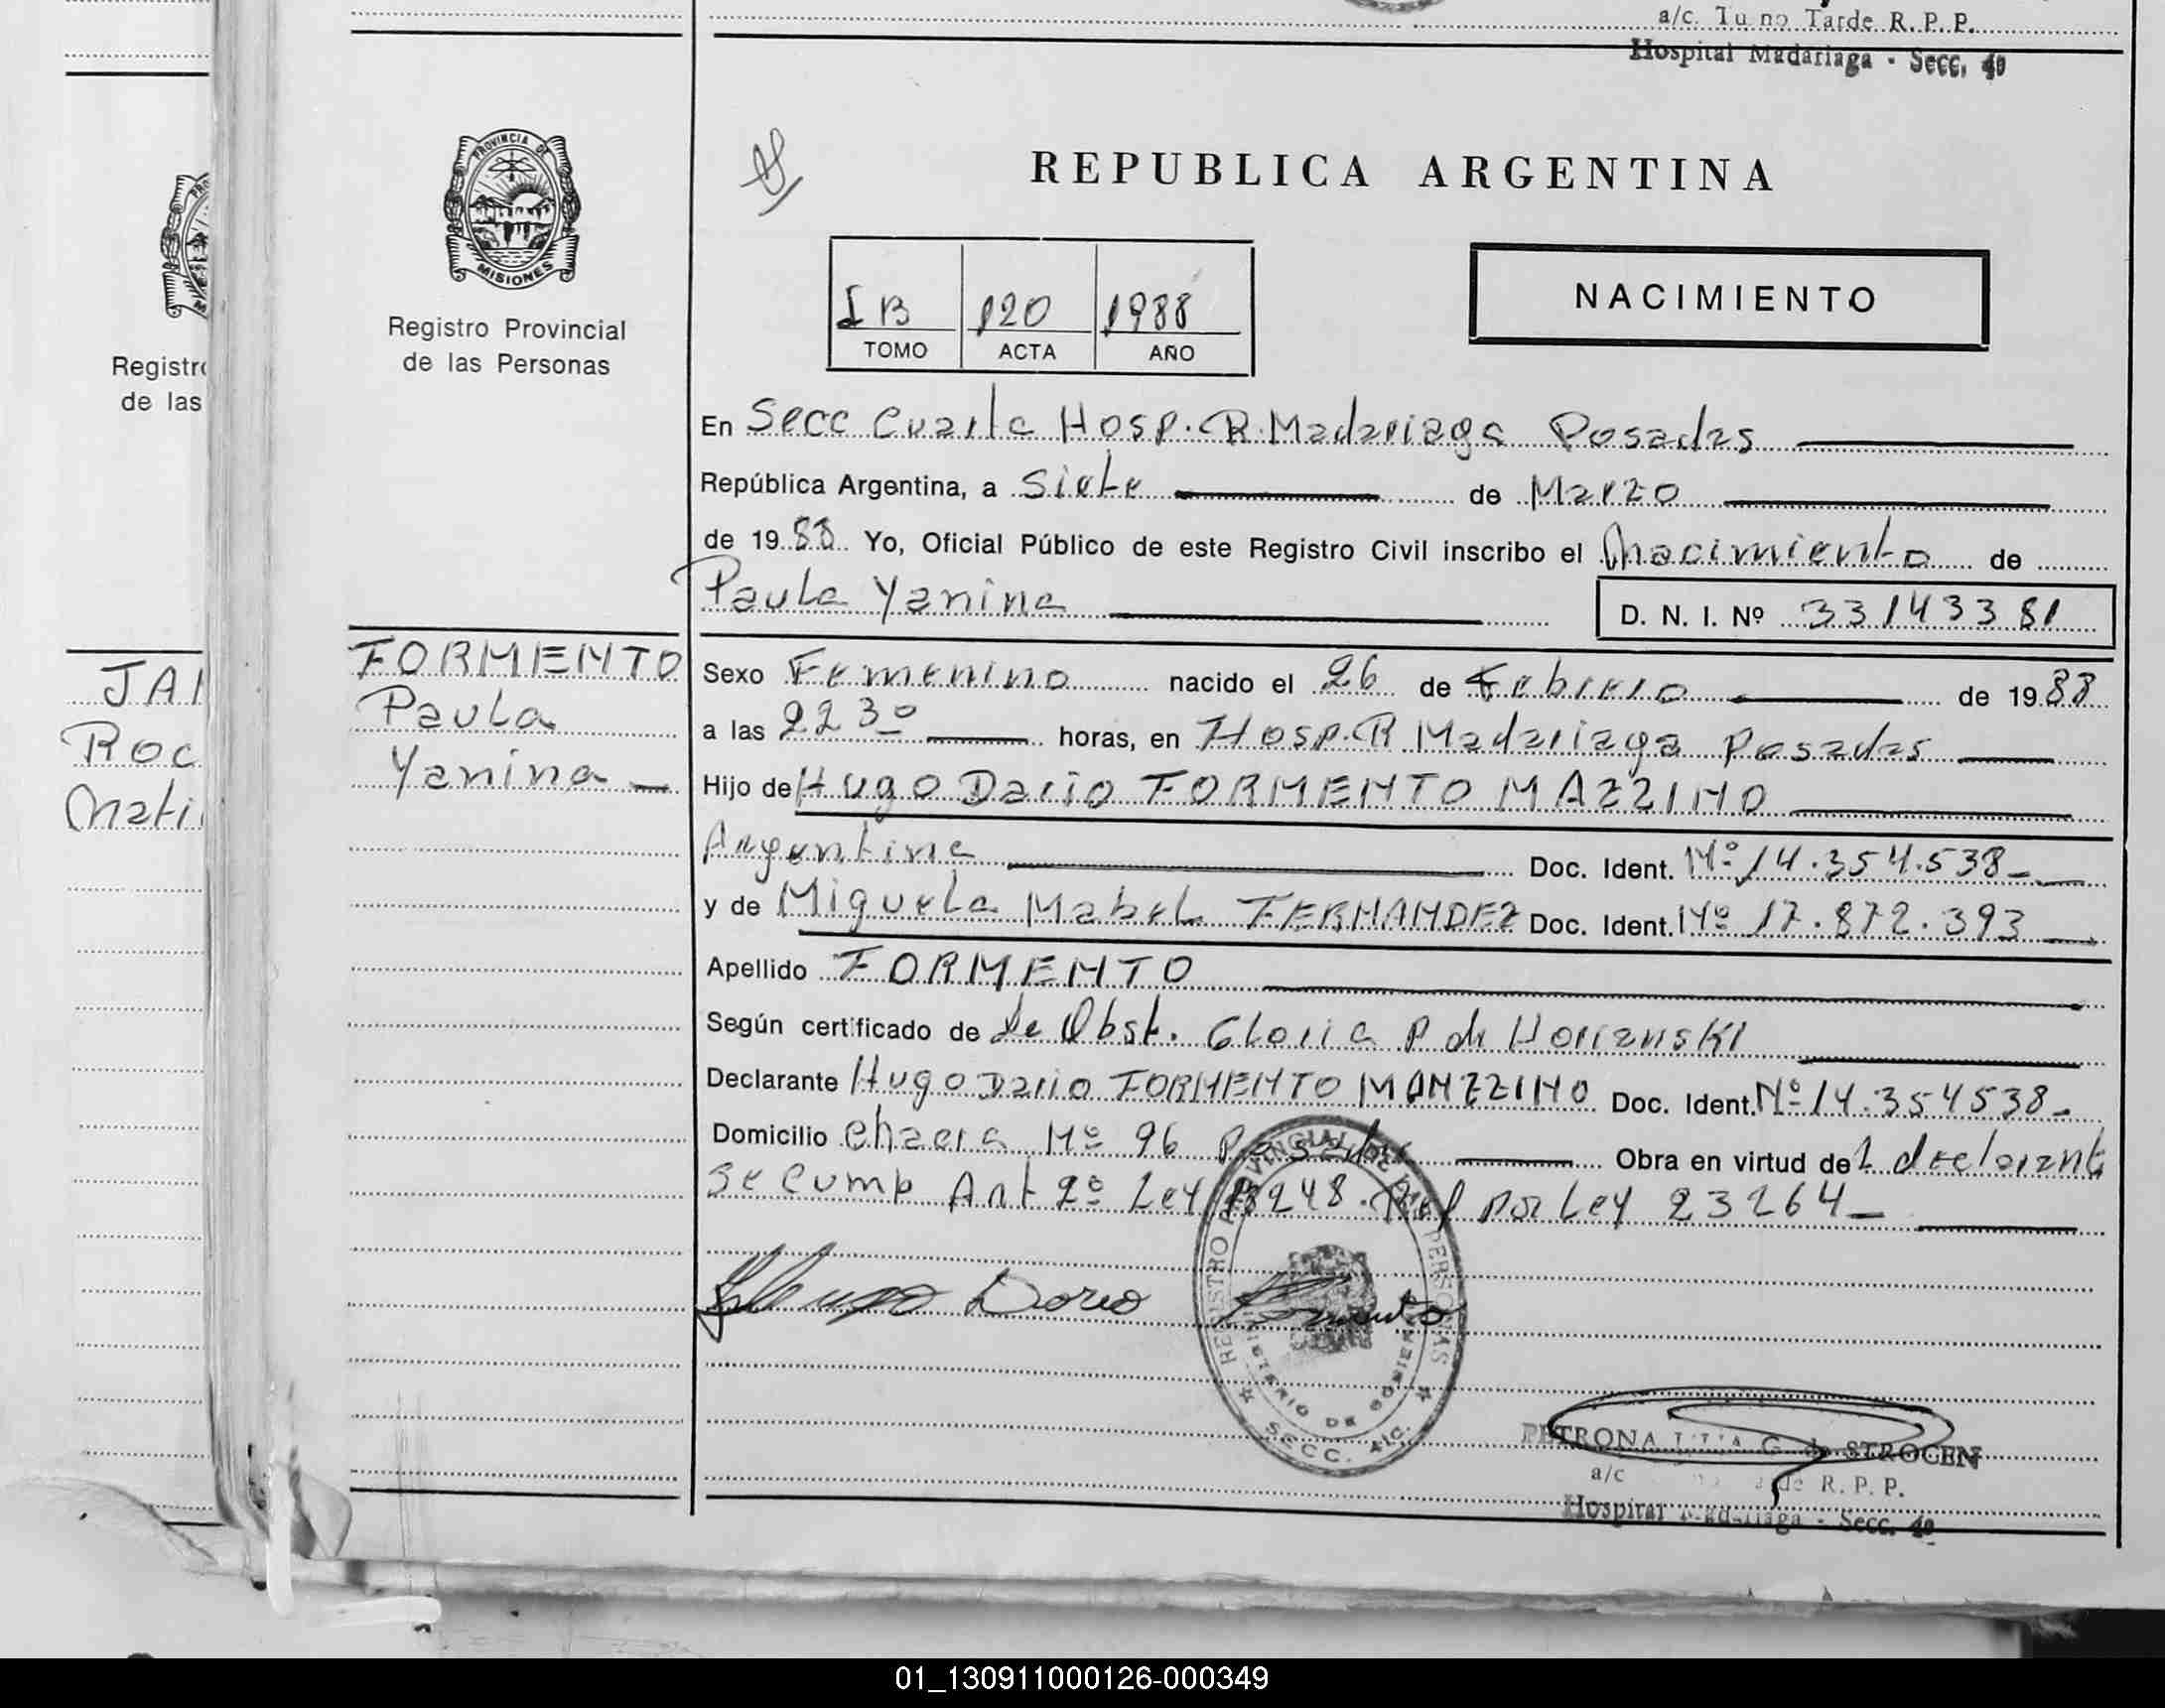 a/c. Tu no Tarde R. P. P.
Hospital Madariaga - Secc. 4º
PROVINCIA DE
MISIONES
Registro Provincial
de las Personas
REPUBLICA ARGENTINA
I B 120 1988
TOMO ACTA AÑO
NACIMIENTO
Registro
de las
JAN
Roc
Mati
FORMENTO
Paula
Yanina
En Secc Cuarta Hosp. R. Madariaga Posadas
República Argentina, a Siete de Marzo
de 1988 Yo, Oficial Público de este Registro Civil inscribo el Nacimiento de
Paula Yanina D. N. I. Nº 33143381
Sexo Femenino nacido el 26 de Febrero de 1988
a las 22 30 horas, en Hosp. R Madariaga Posadas
Hijo de Hugo Dario FORMENTO MAZZINO
Argentina Doc. Ident. Nº 14.354.538
y de Miguela Mabel FERNANDEZ Doc. Ident. Nº 17.872.393
Apellido FORMENTO
Según certificado de la Obst. Gloria P de
Declarante Hugo Dario FORMENTO MANZZINO Doc. Ident. Nº 14.354538
Domicilio Chacra Nº 96 Posadas Obra en virtud del declarante
Se cump Art 2º Ley 18248. Ref por Ley 23264
Hugo Dario Formento
REGISTRO PROVINCIAL DE LAS PERSONAS
MINISTERIO DE GOBIERNO
SECC.
PETRONA G. de STROGEN
a/c R. P. P.
Hospital Madariaga - Secc. 4º
01_130911000126-000349